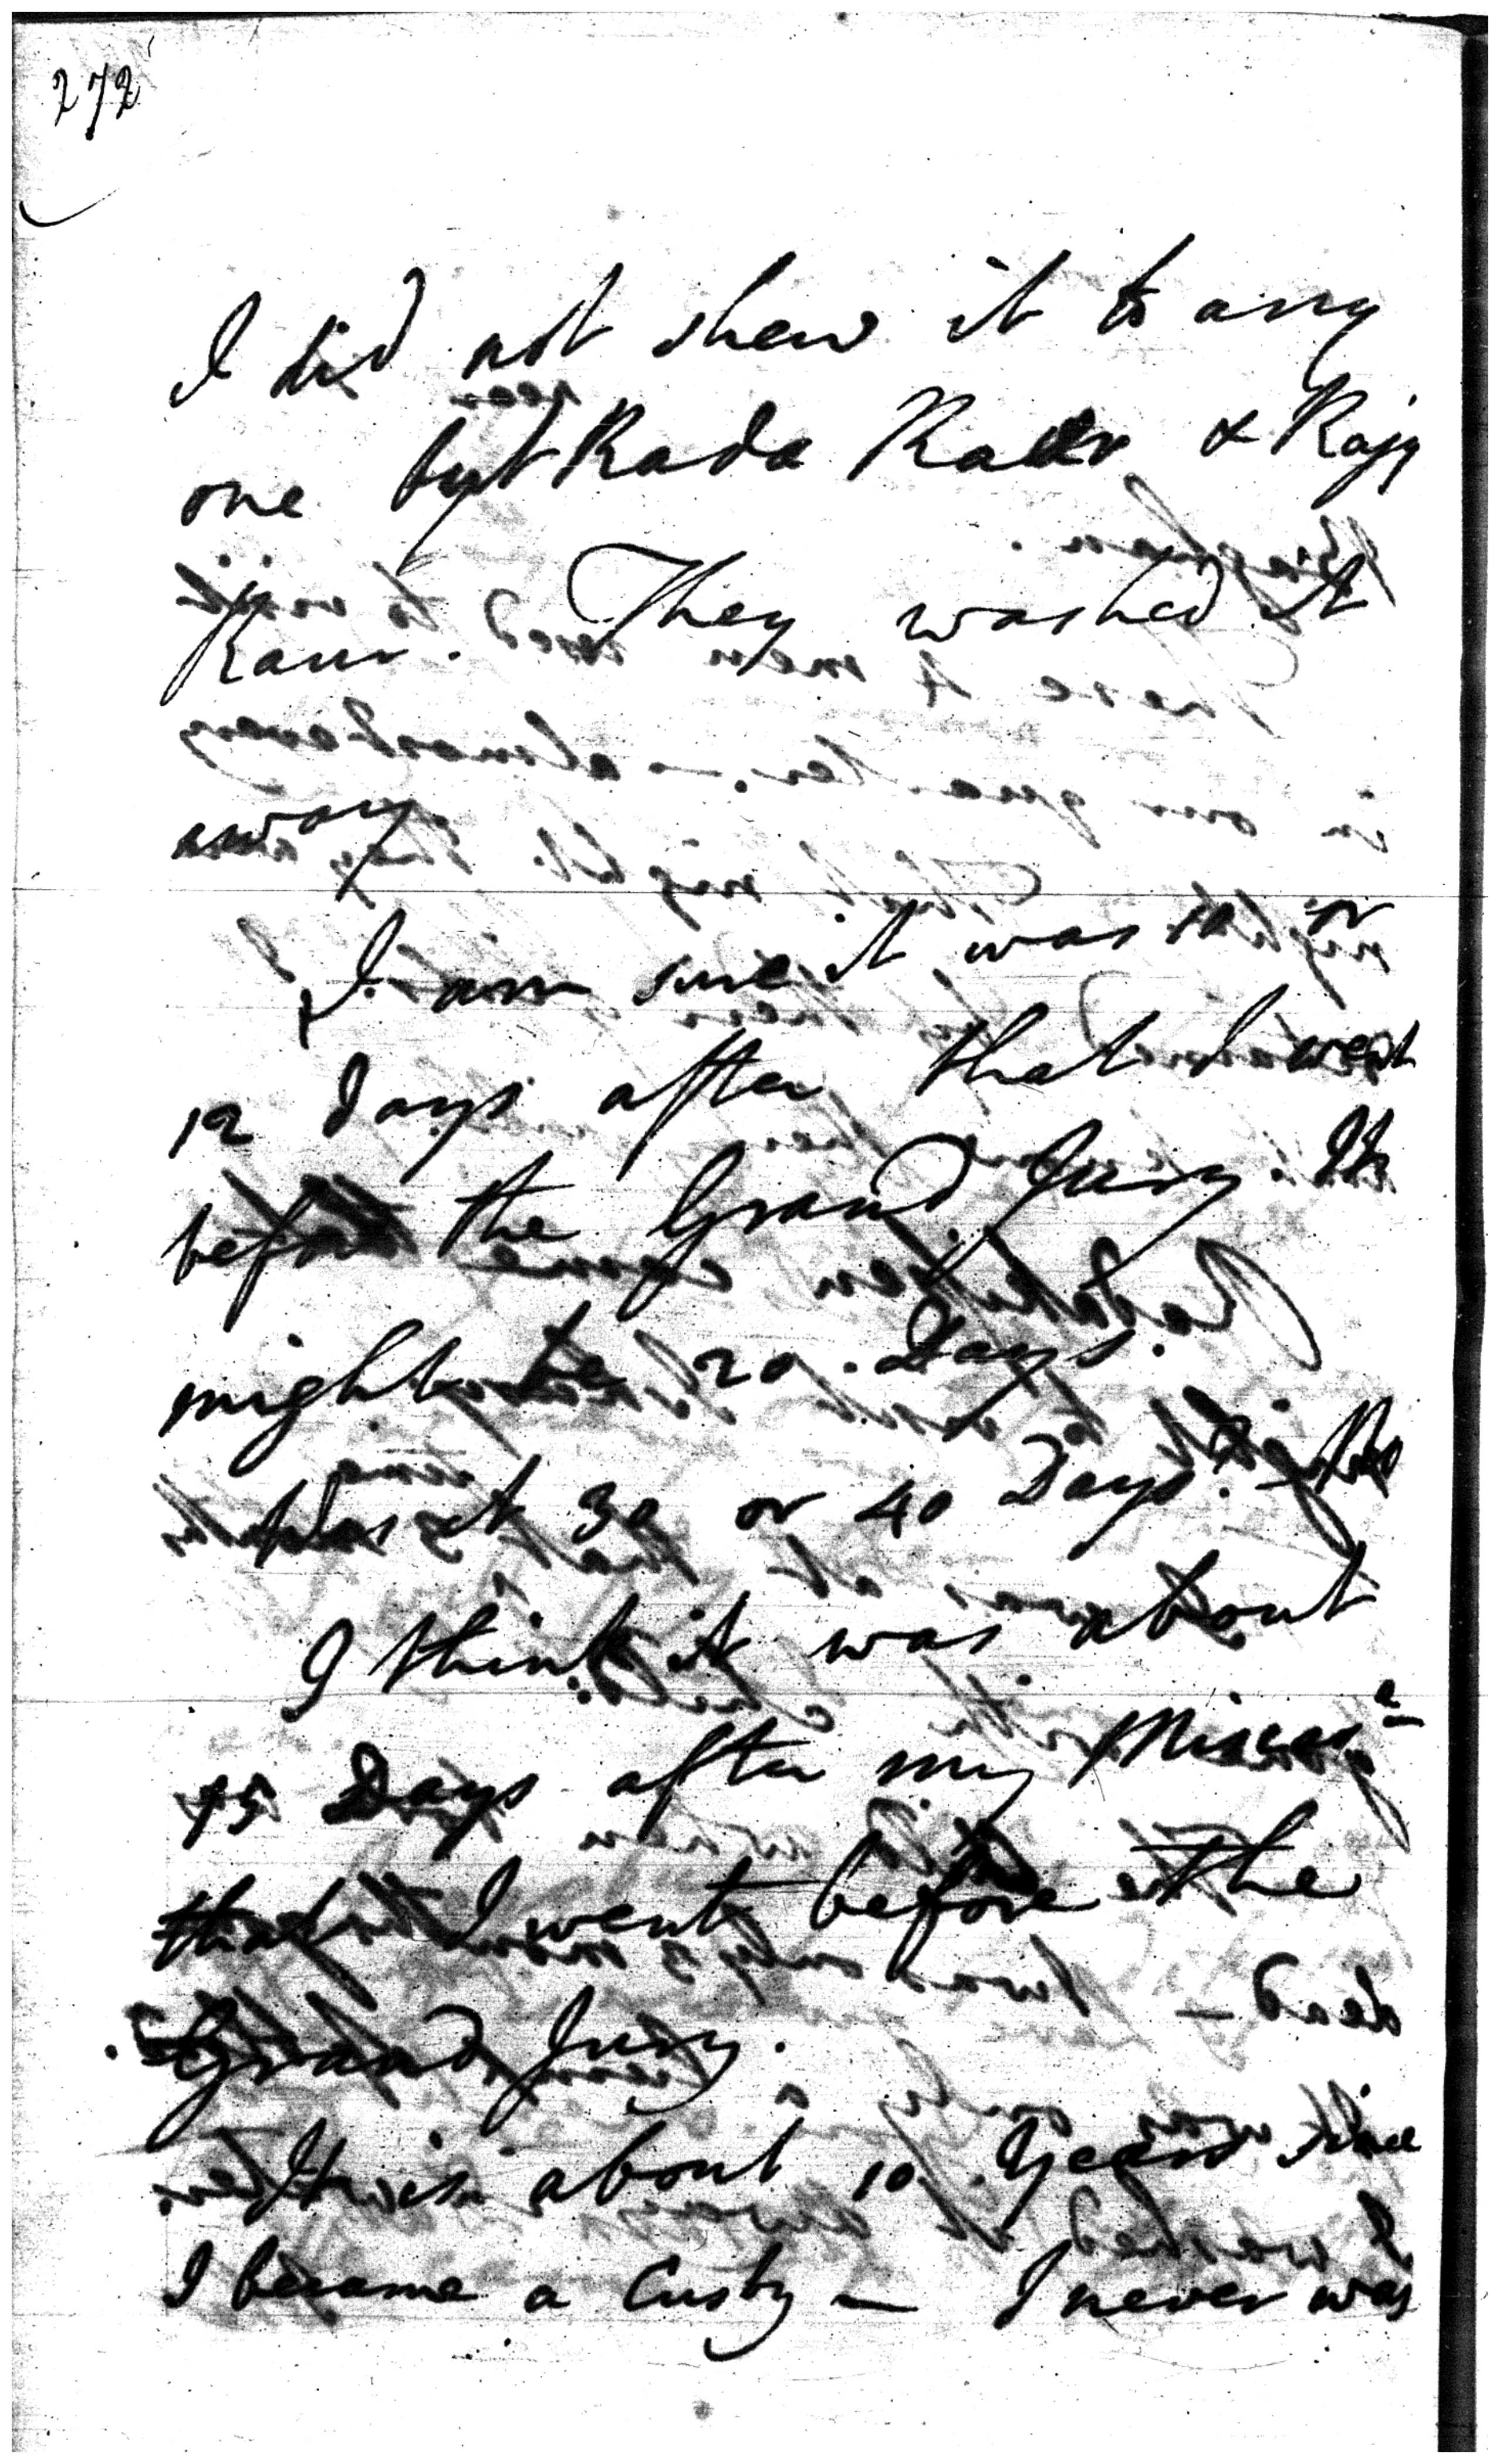 272
I did not shew it to any
one but Rada Kaur & Rajy
Kaur. They washed it
away
I am sure it was 10 or
12 days after that I went
before the Grand Jury. It
might be 20 Days.
Was it 30 or 40 Days?
I think it was about
Days after my Miscar<sup>e</sup>
that I went before the
Grand Jury.
It is about 10 Years since
I became a Cusby — I never was